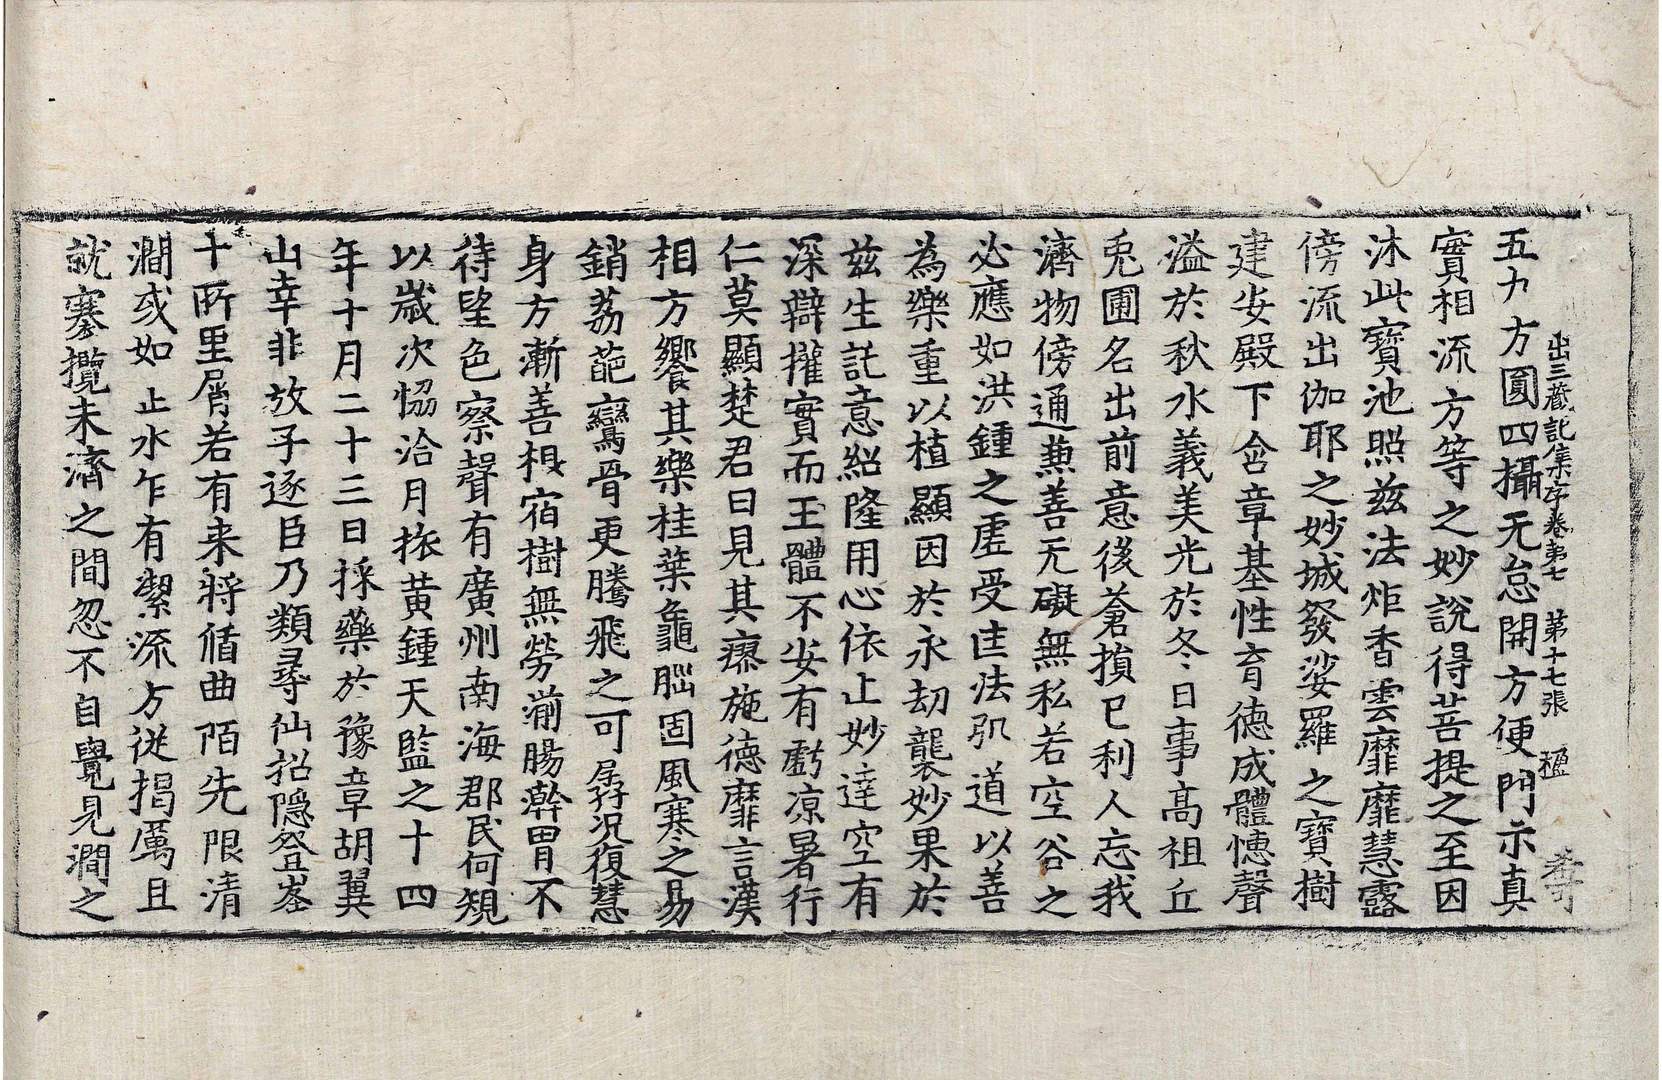 出三藏記集序卷第七　第十七張　楹
五力方圓四攝无怠開方便門示真
實相流方等之妙說得菩提之至因
沐此寶池照茲法炬香雲靡靡慧露
傍流出伽耶之妙城發娑羅之寶樹
建安殿下含章基性育德成體憓聲
溢於秋水義美光於冬日事高祖丘
兎圃名出前意後蒼損己利人忘我
濟物傍通兼善无礙無私若空谷之
必應如洪鍾之虛受告法弘道以善
為樂重以植顯因於永劫襲妙果於
茲生託意紹隆用心依止妙達空有
深辯權實而王體不安有虧涼暑行
仁莫顯楚君曰見其瘳施德靡言漢
相方饗其樂桂葉龜𦠆固風寒之易
銷荔葩鸞骨更騰飛之可孱况復慧
身方漸善根宿樹無勞湔腸澣胃不
待望色察聲有廣州南海郡民何規
以歲次恊洽月旅黃鍾天監之十四
年十月二十三日採藥於豫章胡翼
山幸非放子逐臣乃類尋仙招隱登峯
十所里屑若有来將循曲陌先限清
澗或如止水乍有㓗流方從揭厲且
就褰攬未濟之間忽不自覺見澗之